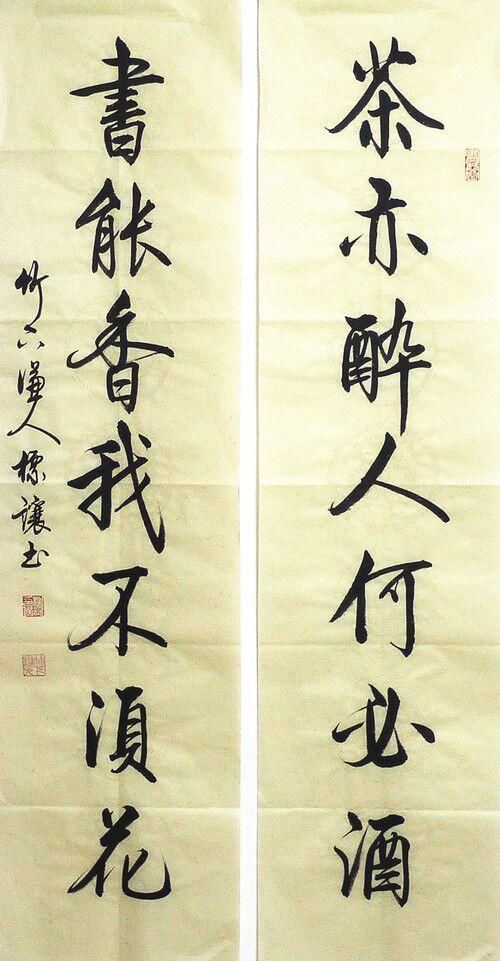 茶亦醉人何必酒
書能香我不須花
竹下謙人標讓书